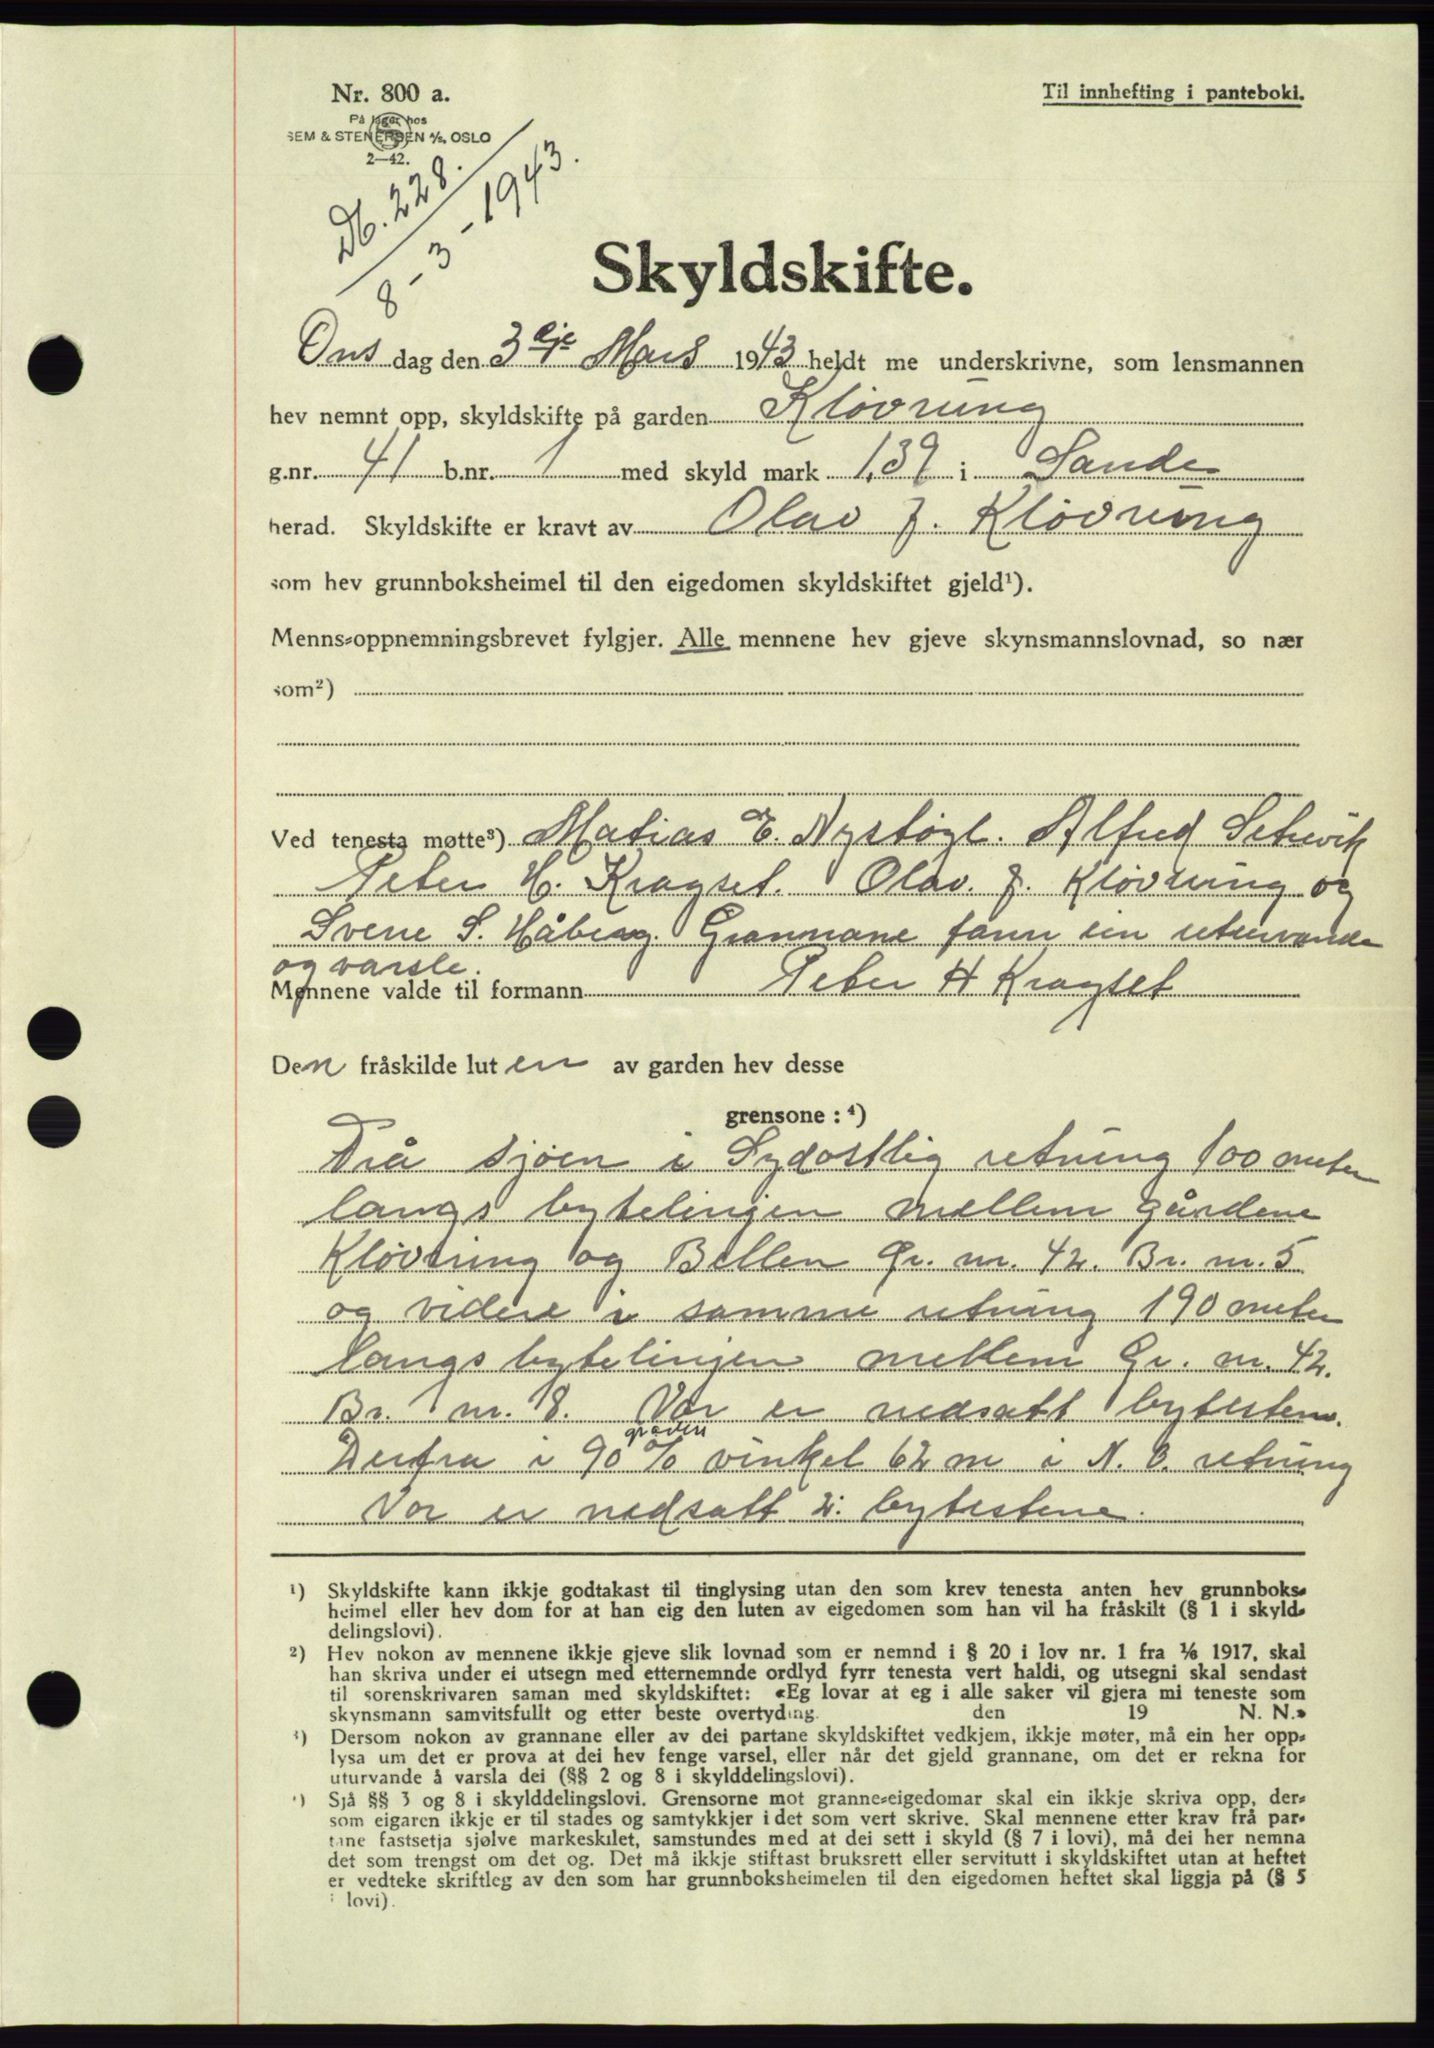 Nr. 800 a.
Til innhefting i panteboki.
På lager hos
SEM & STENERSEN A/S, OSLO
2—42.
Db. 228.
8 - 3 - 1943.
Skyldskifte.
Ons dag den 3dje Mars 1943 heldt me underskrivne, som lensmannen
hev nemnt opp, skyldskifte på garden Kløvning
g.nr. 41 b.nr. 1 med skyld mark 1,39 i Sande
herad. Skyldskifte er kravt av Olav J. Kløvning
som hev grunnboksheimel til den eigedomen skyldskiftet gjeld¹).
Menns=oppnemningsbrevet fylgjer. Alle mennene hev gjeve skynsmannslovnad, so nær
som²)
Ved tenesta møtte³) Matias E. Nystøyl. Alfred Setevik
Peter H. Kragset. Olav. J. Kløvning og
Sverre S. Håberg. Grannane fann ein uturvande
og varsle.
Mennene valde til formann Peter H Kragset
Den fråskilde luten av garden hev desse
grensone : ⁴)
Frå sjøen i Sydostlig retning 100 meter
langs bytelinjen mellem gårdene
Kløvning og Bellen Gr. nr. 42. Br. nr. 5
og videre i samme retning 190 meter
langs bytelinjen mellem Gr. nr. 42.
Br. nr. 8. Var er nedsatt bytestene.
graders
Derfra i 90 % vinkel 62 m i N. O. retning
Var er nedsatt 2. bytestene.
¹) Skyldskifte kann ikkje godtakast til tinglysing utan den som krev tenesta anten hev grunnboks=
heimel eller hev dom for at han eig den luten av eigedomen som han vil ha fråskilt (§ 1 i skyld=
delingslovi).
²) Hev nokon av mennene ikkje gjeve slik lovnad som er nemnd i § 20 i lov nr. 1 fra 1/6 1917, skal
han skriva under ei utsegn med etternemnde ordlyd fyrr tenesta vert haldi, og utsegni skal sendast
til sorenskrivaren saman med skyldskiftet: «Eg lovar at eg i alle saker vil gjera mi teneste som
skynsmann samvitsfullt og etter beste overtyding. den 19 N. N.»
³) Dersom nokon av grannane eller av dei partane skyldskiftet vedkjem, ikkje møter, må ein her opp=
lysa um det er prova at dei hev fenge varsel, eller når det gjeld grannane, om det er rekna for
uturvande å varsla dei (§§ 2 og 8 i skylddelingslovi).
⁴) Sjå §§ 3 og 8 i skylddelingslovi. Grensorne mot granne=eigedomar skal ein ikkje skriva opp, der=
som eigaren ikkje er til stades og samtykkjer i det som vert skrive. Skal mennene etter krav frå par=
tane fastsetja sjølve markeskilet, samstundes med at dei sett i skyld (§ 7 i lovi), må dei her nemna
det som trengst om det og. Det må ikkje stiftast bruksrett eller servitutt i skyldskiftet utan at heftet
er vedteke skriftleg av den som har grunnboksheimelen til den eigedomen heftet skal liggja på (§ 5
i lovi).